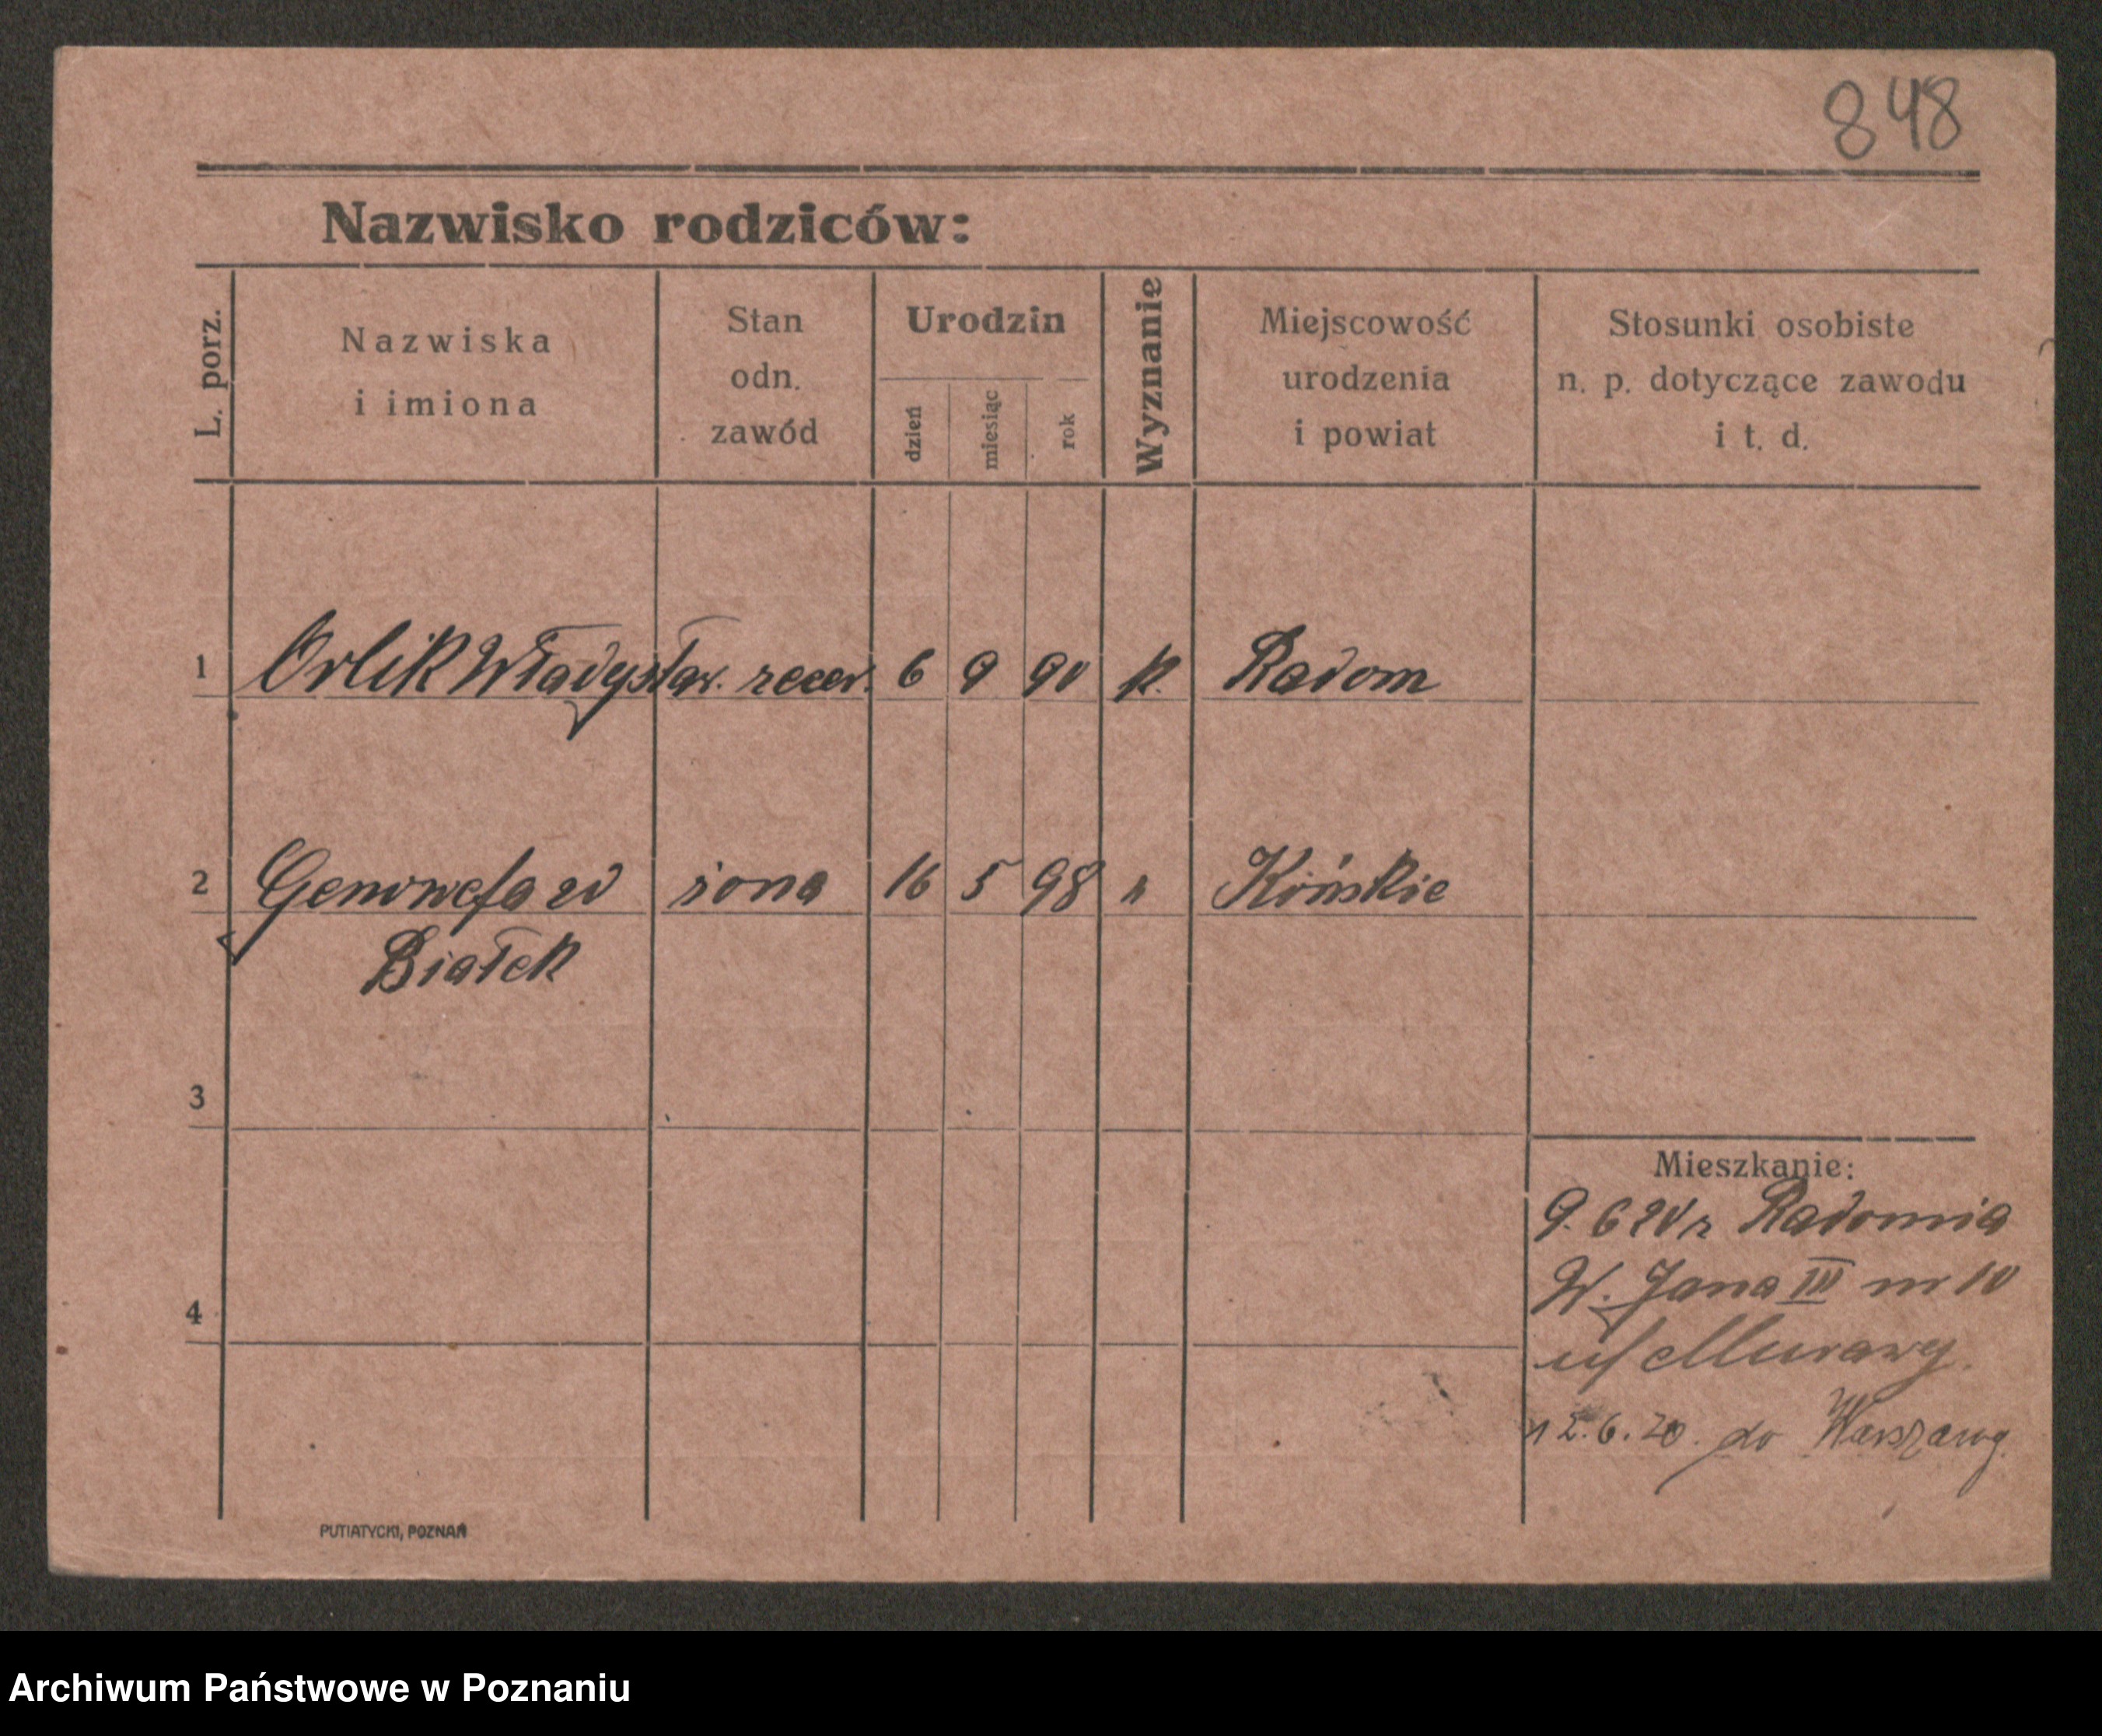 848
Nazwisko rodziców:
L. porz.
Nazwiska
i imiona
Stan
odn.
zawód
Urodzin
dzień
miesiąc
rok
Wyznanie
Miejscowość
urodzenia
i powiat
Stosunki osobiste
n. p. dotyczące zawodu
i t. d.
1 Orlik Władysław. 6 9 90 k. Radom
2 Genowefa żona 16 5 98 k Kińskie
Białek
3
4
Mieszkanie:
9. 6 20 z Radomia
W. Jana III nr 10
u/ Murawy.
12.6.20. do Warszawy.
PUTIATYCKI, POZNAŃ
Archiwum Państwowe w Poznaniu